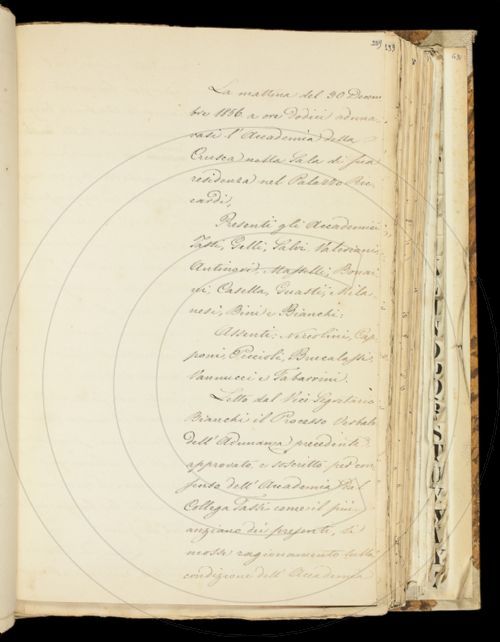 La mattina del 30 Decem
bre 1856 a ore dodici aduna
vasi l'Accademia della
Crusca nella Sala di sua
residenza nel Palazzo Ric
cardi.
Presenti gli Accademici
Tassi, Gelli, Salvi, Valeriani,
Antinori, Masselli, Bonai
ni, Casella, Guasti, Mila
nesi, Bini e Bianchi:
Assenti: Niccolini, Cap
poni, Piccioli, Buccalassi,
Vannucci e Tabarrini.
Letto dal Vice Segretario
Bianchi il Processo Verbale
dell'Adunanza precedente
approvato, e soscritto per
senso dell'Accademia dal
Collega Tassi come il più
anziano dei presenti, si
mosse ragionamento sulla
condizione dell'Accademia